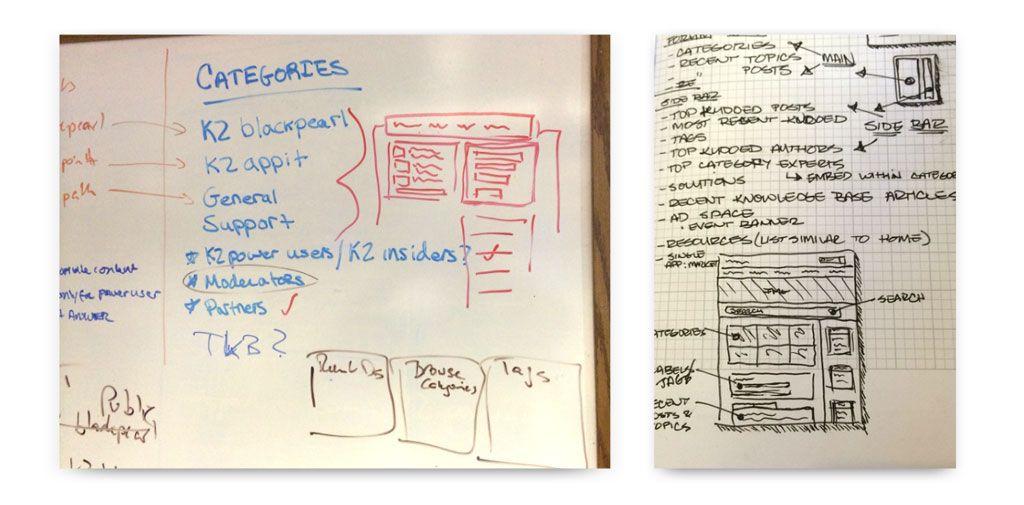 CATEGORIES
K2 blackpearl
K2 appit
General
Support
* K2 power users/K2 insiders?
* Moderators
* Partners ✓
TKB?
content
only for power user
ANSWER
path
Browse
Categories
Tags
Public
blackpearl
- CATEGORIES
- RECENT TOPICS
POSTS
MAIN
SIDE BAR
- TOP KUDOED POSTS
- MOST RECENT KUDOED
- TAGS
- TOP KUDOED AUTHORS
- TOP CATEGORY EXPERTS
↳ EMBED WITHIN CATEGOR
- SOLUTIONS
- RECENT KNOWLEDGE BASE ARTICLES
- AD SPACE
· EVENT BANNER
- RESOURCES (LIST SIMILAR TO HOME)
- SINGLE
APP: MARKET
SIDE BAR
SEARCH
SEARCH
ATEGORIES
LABELS/
TAGS
ECENT
OSTS &
OPICS